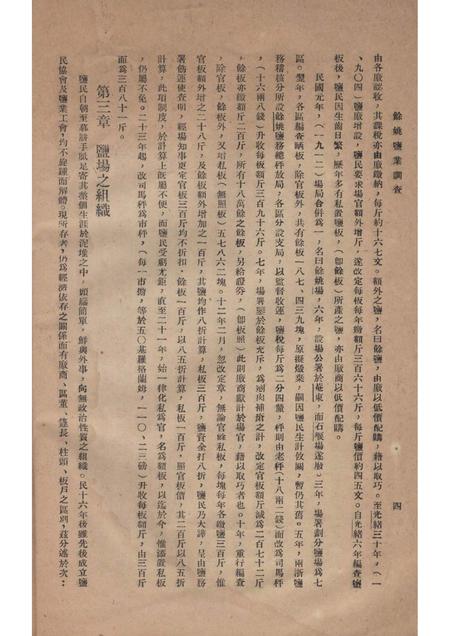 餘姚鹽業調查
四
由各廠認收，其課稅亦由廠繳納，每斤約十六七文。額外之鹽，名曰餘鹽，由廠以低價配購，藉以取巧。至光緒三十年，（一
九〇四）鹽廠增設，鹽民要求場官額外增斤，遂改定每板每年繳額斤三百六十六斤，每斤鹽價約四五文。自光緒六年編查鹽
板後，鹽民因生齒日繁，歷年多有私置鹽板，（卽餘板）所產之鹽，亦由廠商以低價配購。
民國元年，（一九一二）場局合併爲一，名曰餘姚場，六年，設場公署於菴東，而石堰場遂廢）三年，場署劃分鹽場爲七
區。翌年，各區編查晒板，除官板外，共有餘板一八七、四三九塊，原擬燬棄，嗣因鹽民生計攸關，暫仍其舊。五年，兩浙鹽
務稽核分所設餘姚鹽務總秤放局，各區分設支局，以監督收運，鹽稅每斤爲二分四釐，秤則由老秤（十八兩二錢）而改爲司馬秤
，（十六兩八錢）升收每板額斤三百九十六斤。七年，場署鑒於餘板充斥，爲剜肉補瘡之計，改定官板額斤減爲二百七十二斤
，餘板亦繳額斤二百斤，所有十八萬餘之餘板，另給證券，（卽板照）此制廠商獻計於場官，藉以取巧者也。十年，重行編查
，除官板，餘板外，又增私板（無照板）五七八六二塊。十二年二月，忽改定章，無論官餘私板，每塊每年各繳鹽三百斤，惟
官板額外增二十八斤，及餘板額外增加之一百斤，其鹽均作八折計算，私板三百斤，鹽資全打八折，鹽民乃大譁，呈由鹽務
署飭運使查明，經場知事更定官板三百斤均不折扣，餘板一百斤，以八五折計算，私板一百斤，照官板價，其二百斤以八五折
計算，此項制度，於計算上旣屬不便，而鹽民受虧尤鉅，直至二十一年，始一律化私爲官，名爲額板，以迄於今，惟添嚴私板
，仍屬不免。二十三年起，改司馬秤爲市秤，（每一市擔，等於五〇基羅格蘭姆，一一〇、二三磅）升收每板額斤，由三百斤
而爲三百八十一斤。
第三章　鹽場之組織
鹽民自朝至暮胼手胝足寄其整個生涯於泥堆之中，頭腦簡單，鮮與外事，向無政治性質之組織。民十六年後雖先後成立鹽
民協會及鹽業工會，均不旋踵而解體。現所存者，仍爲經濟依存之關係而有廠商、區董、篷長、柱頭、板戶之區別，茲分述於次：